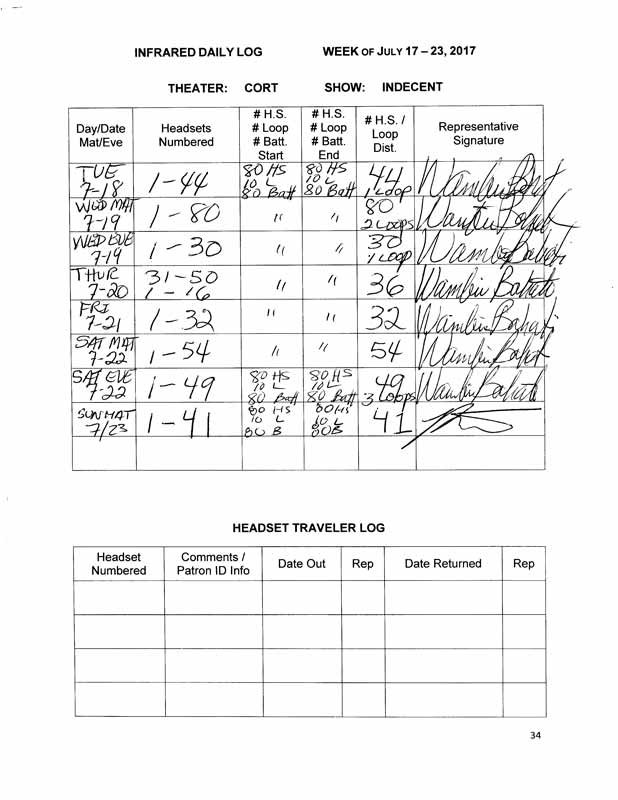 INFRARED DAILY LOG WEEK OF JULY 17 – 23, 2017
THEATER: CORT SHOW: INDECENT
Day/Date Mat/Eve Headsets Numbered # H.S. # Loop # Batt. Start # H.S. # Loop # Batt. End # H.S. / Loop Dist. Representative Signature
TUE 7-18 1-44 80 HS 10 L 80 Batt 80 HS 10 L 80 Batt 44 1 Loop
WED MAT 7-19 1-80 " " 80 2 Loops
WED EVE 7-19 1-30 " " 30 1 LOOP
THUR 7-20 31-50 1-16 " " 36
FRI 7-21 1-32 " " 32
SAT MAT 7-22 1-54 " " 54
SAT EVE 7-22 1-49 80 HS 10 L 80 Batt 80 HS 10 L 80 Batt 49 3 Loops
SUN MAT 7/23 1-41 80 HS 10 L 80 B 80 HS 10 L 80B 41
HEADSET TRAVELER LOG
Headset Numbered Comments / Patron ID Info Date Out Rep Date Returned Rep
34